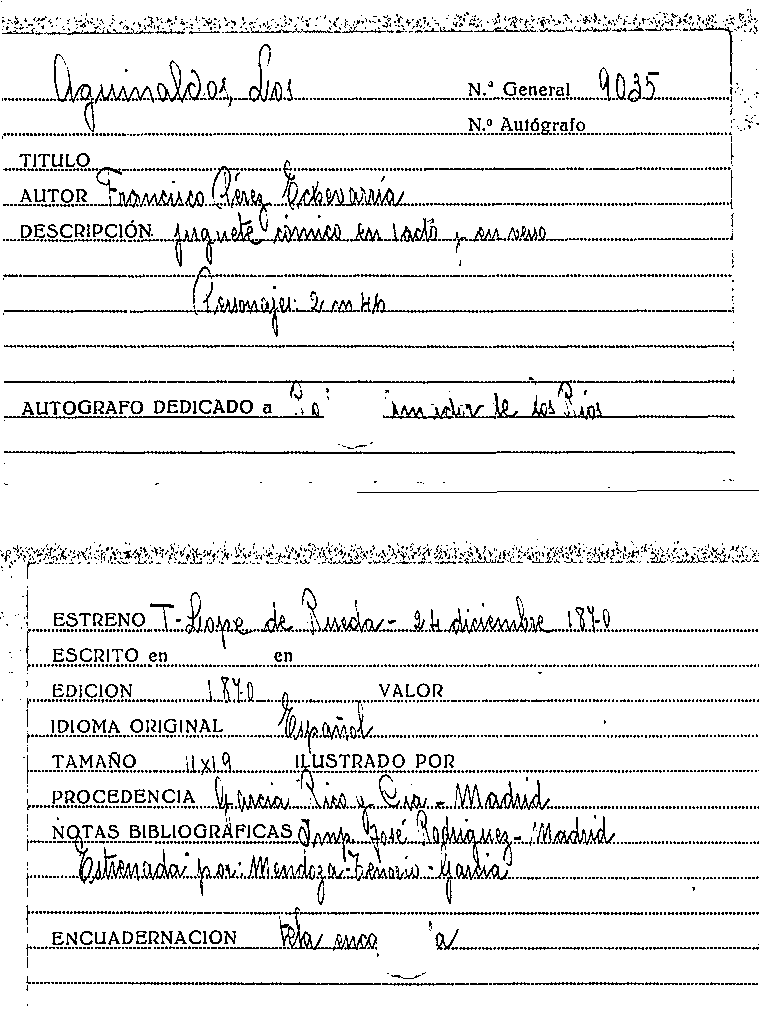 Aguinaldos, Los
N.º General 9035
N.º Autógrafo
TITULO
AUTOR Francisco Pérez Echevarría
DESCRIPCIÓN juguete cómico en 1 acto y en verso
Personajes: 2 m 4 h
AUTOGRAFO DEDICADO a de los Ríos
ESTRENO T- Lope de Rueda - 24 diciembre 1870
ESCRITO en en
EDICION 1870 VALOR
IDIOMA ORIGINAL Español
TAMAÑO 11x19 ILUSTRADO POR
PROCEDENCIA Garcia Rico y Cia - Madrid
NOTAS BIBLIOGRÁFICAS Imp. José Rodriguez - Madrid
Estrenada por: Mendoza-Tenorio - Garcia
ENCUADERNACION tela